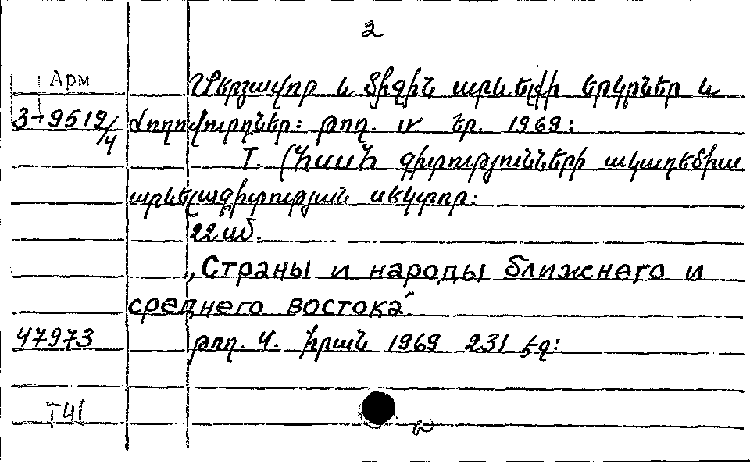 2
Арм
Մերձավոր և միջին արևելքի երկրներ և
3-9519/4 ժողովուրդներ: թող. IV եր. 1969:
T. (ՀՍՍՀ գիտությունների ակադեմիա
արևելագիտության սեկտոր:
22 սմ.
„Страны и народы ближнего и
среднего востока".
47973 թող. 4. Իրան 1969 231 էջ:
T41